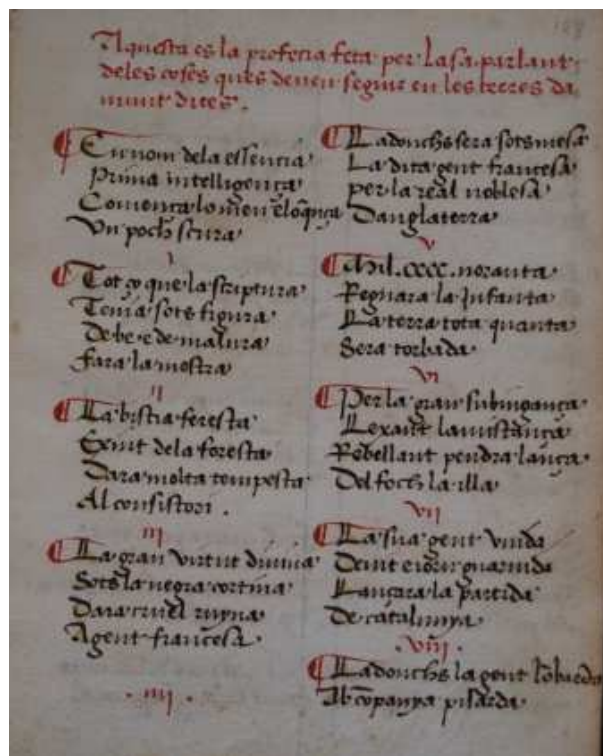 Aquesta es la profecia feta per la sa parlant
deles coses ques deuen seguir en les terres da
munt dites.
En nom dela essencia
Prima intelligença
Comença lo meu eloqnça
Vn poch scura
i
Tot ço que la scriptura
Tenia sots figura
De be e de malura
fara la mostra
ii
La bistia feresta
Exint dela foresta
Dara molta tempesta
Al consistori.
iii
La gran virtut diuina
Sots la negra cortina
Dara cruel ruyna
A gent francesa
.iiii.
Ladonchs sera sotsmesa
La dita gent francesa
per la real noblesa
Danglaterra
v
Mil.cccc.noranta
Regnara la Infanta
La terra tota quanta
Sera torbada
vi
Per la gran
Lexant
Rebellant pendra lança
Del foch la illa
vii
La sua gent vnida
guarnida
Lançara la partida
De catalunya
.viii.
Ladonchs la gent lobarda
Ab copanya pilarda